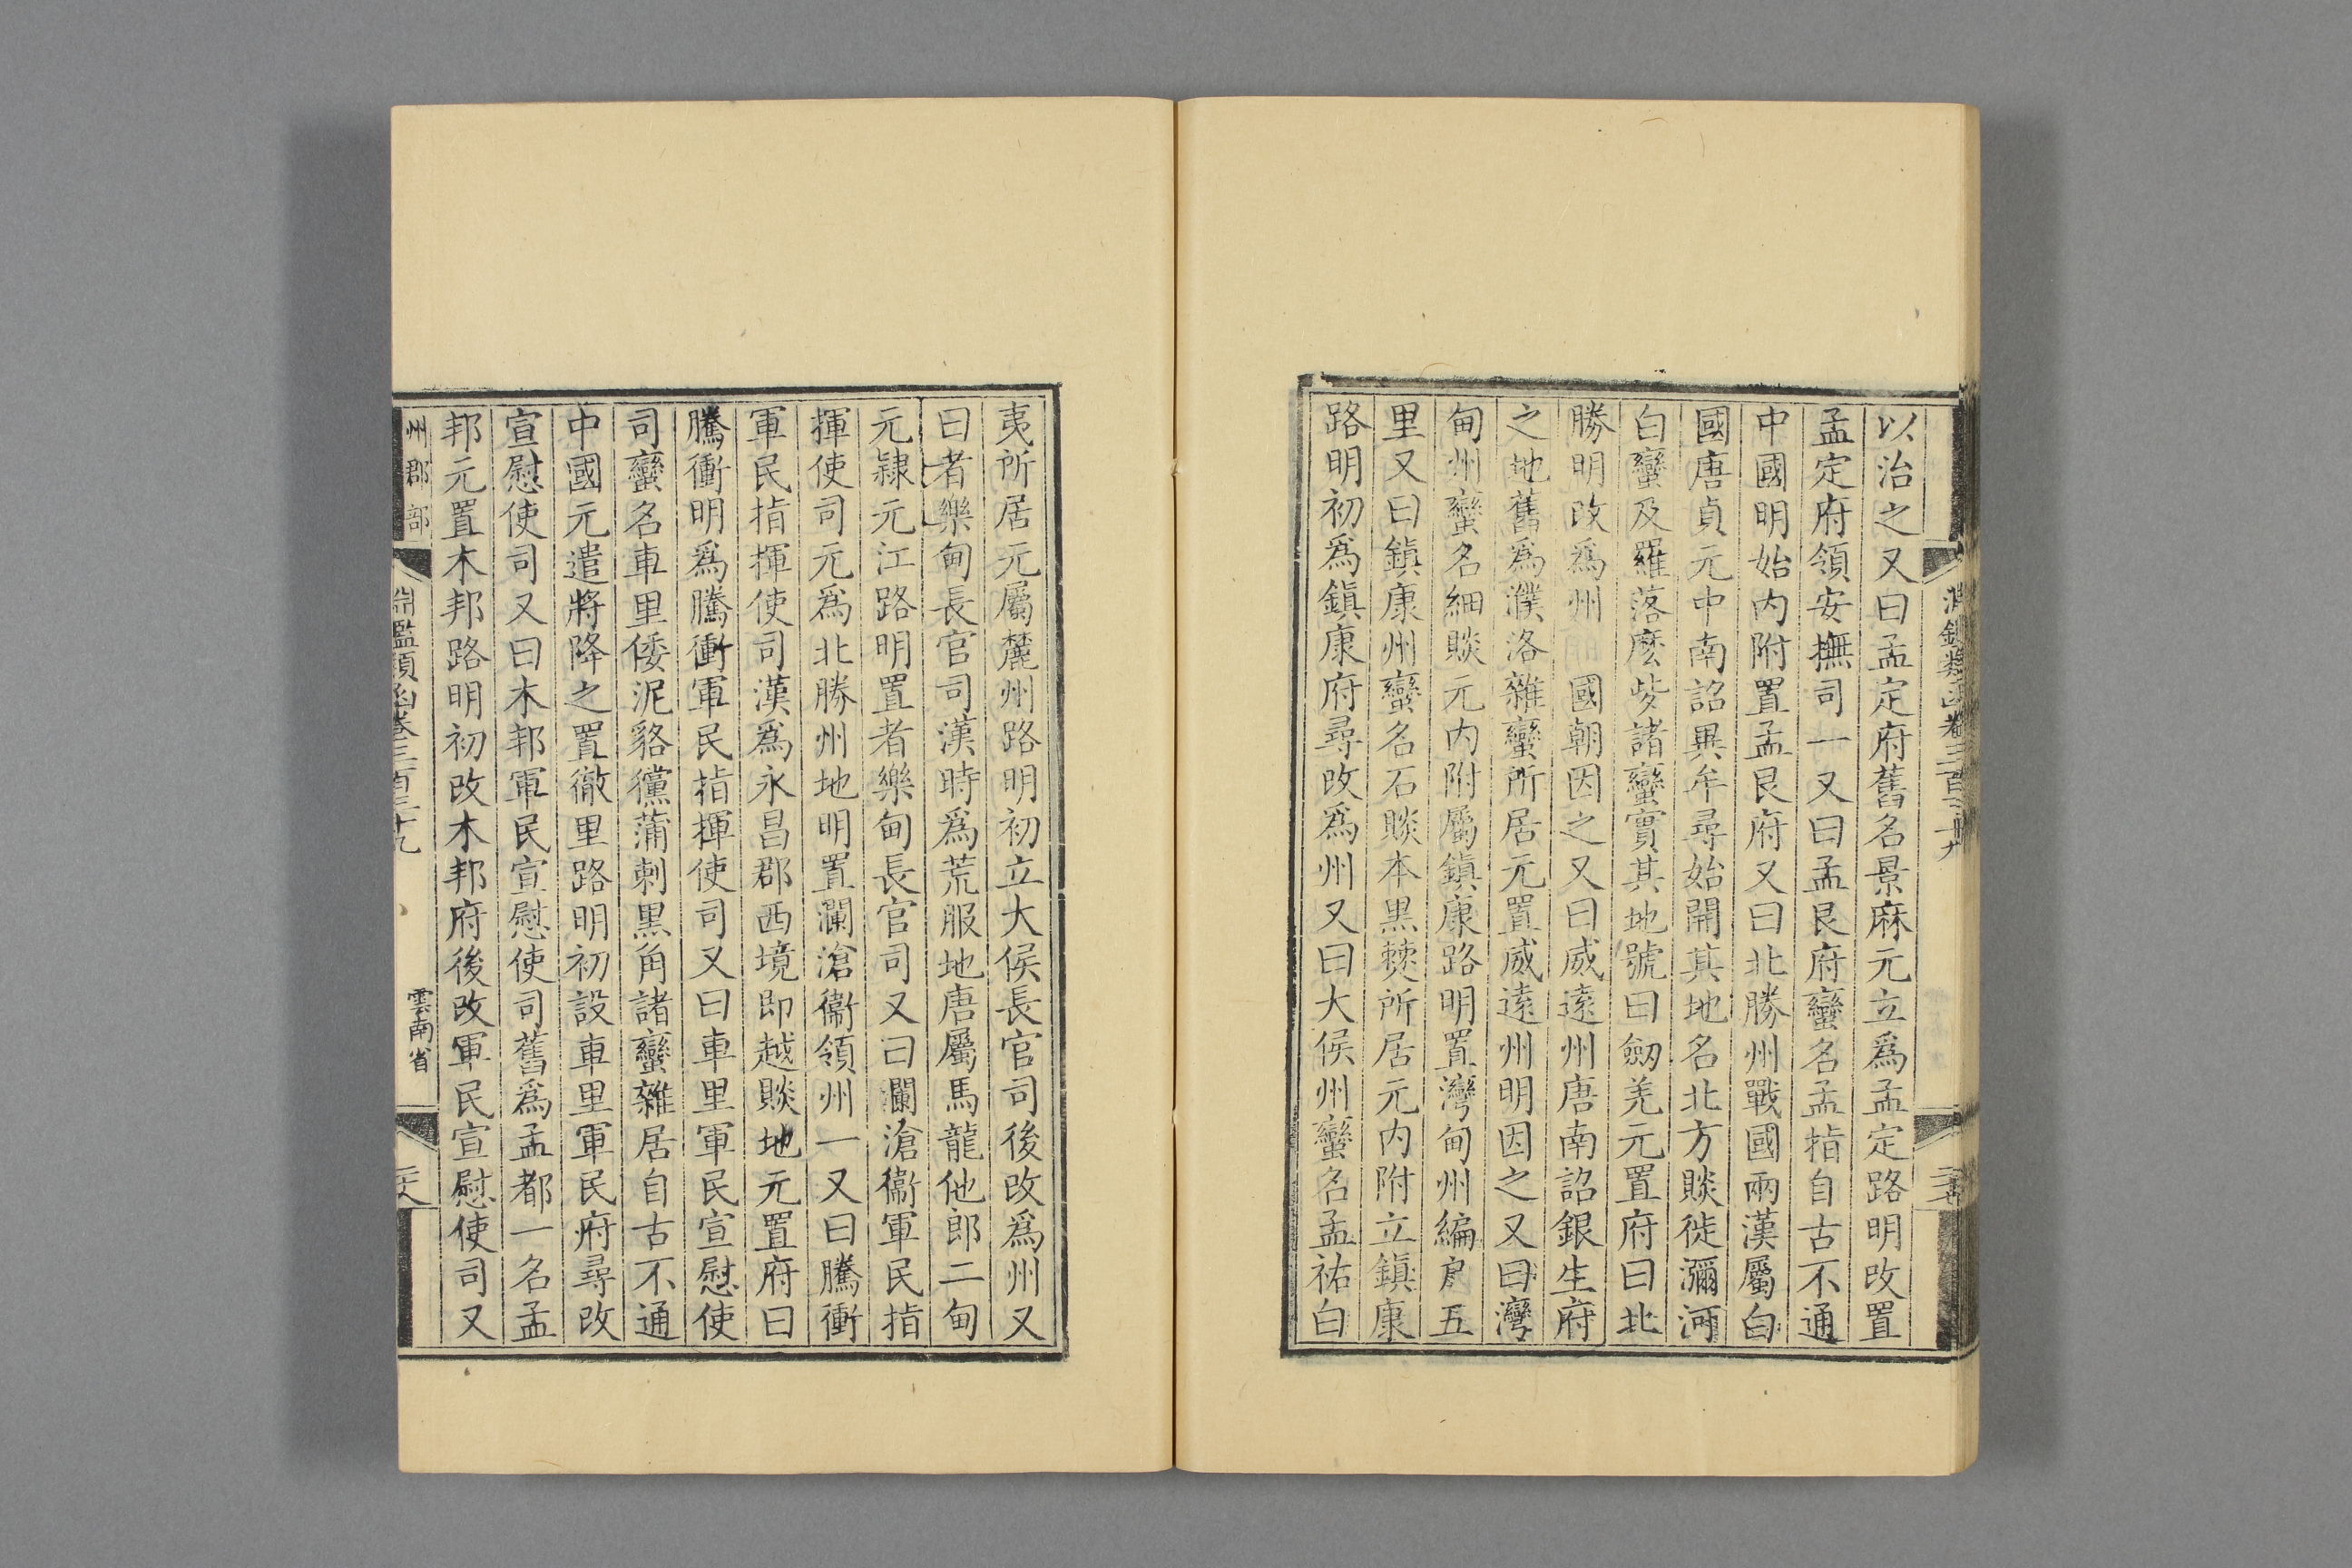 以治之又曰孟定府舊名景麻元立爲孟定路明改置
孟定府領安撫司一又曰孟艮府蠻名孟指自古不通
中國明始內附置孟艮府又曰北勝州戰國兩漢屬白
國唐貞元中南詔異牟尋始開其地名北方賧徙瀰河
白蠻及羅落麽㱔諸蠻實其地號曰劒羌元置府曰北
勝明改爲州 國朝因之又曰威遠州唐南詔銀生府
之地舊爲濮洛雜蠻所居元置威遠州明因之又曰灣
甸州蠻名細賧元內附屬鎮康路明置灣甸州編戶五
里又曰鎮康州蠻名石賧本黑僰所居元內附立鎮康
路明初爲鎮康府尋改爲州又曰大侯州蠻名孟祐白
夷所居元屬麓州路明初立大侯長官司後改爲州又
曰者樂甸長官司漢時爲荒服地唐屬馬龍他郎二甸
元隸元江路明置者樂甸長官司又曰瀾滄衞軍民指
揮使司元爲北勝州地明置瀾滄衞領州一又曰騰衝
軍民指揮使司漢爲永昌郡西境即越賧地元置府曰
騰衝明爲騰衝軍民指揮使司又曰車里軍民宣慰使
司蠻名車里倭泥貉獵蒲剌黑角諸蠻雜居自古不通
中國元遣將降之置徹里路明初設車里軍民府尋改
宣慰使司又曰木邦軍民宣慰使司舊爲孟都一名孟
邦元置木邦路明初改木邦府後改軍民宣慰使司又
州郡部 淵鑑類函卷三百三十九 雲南省